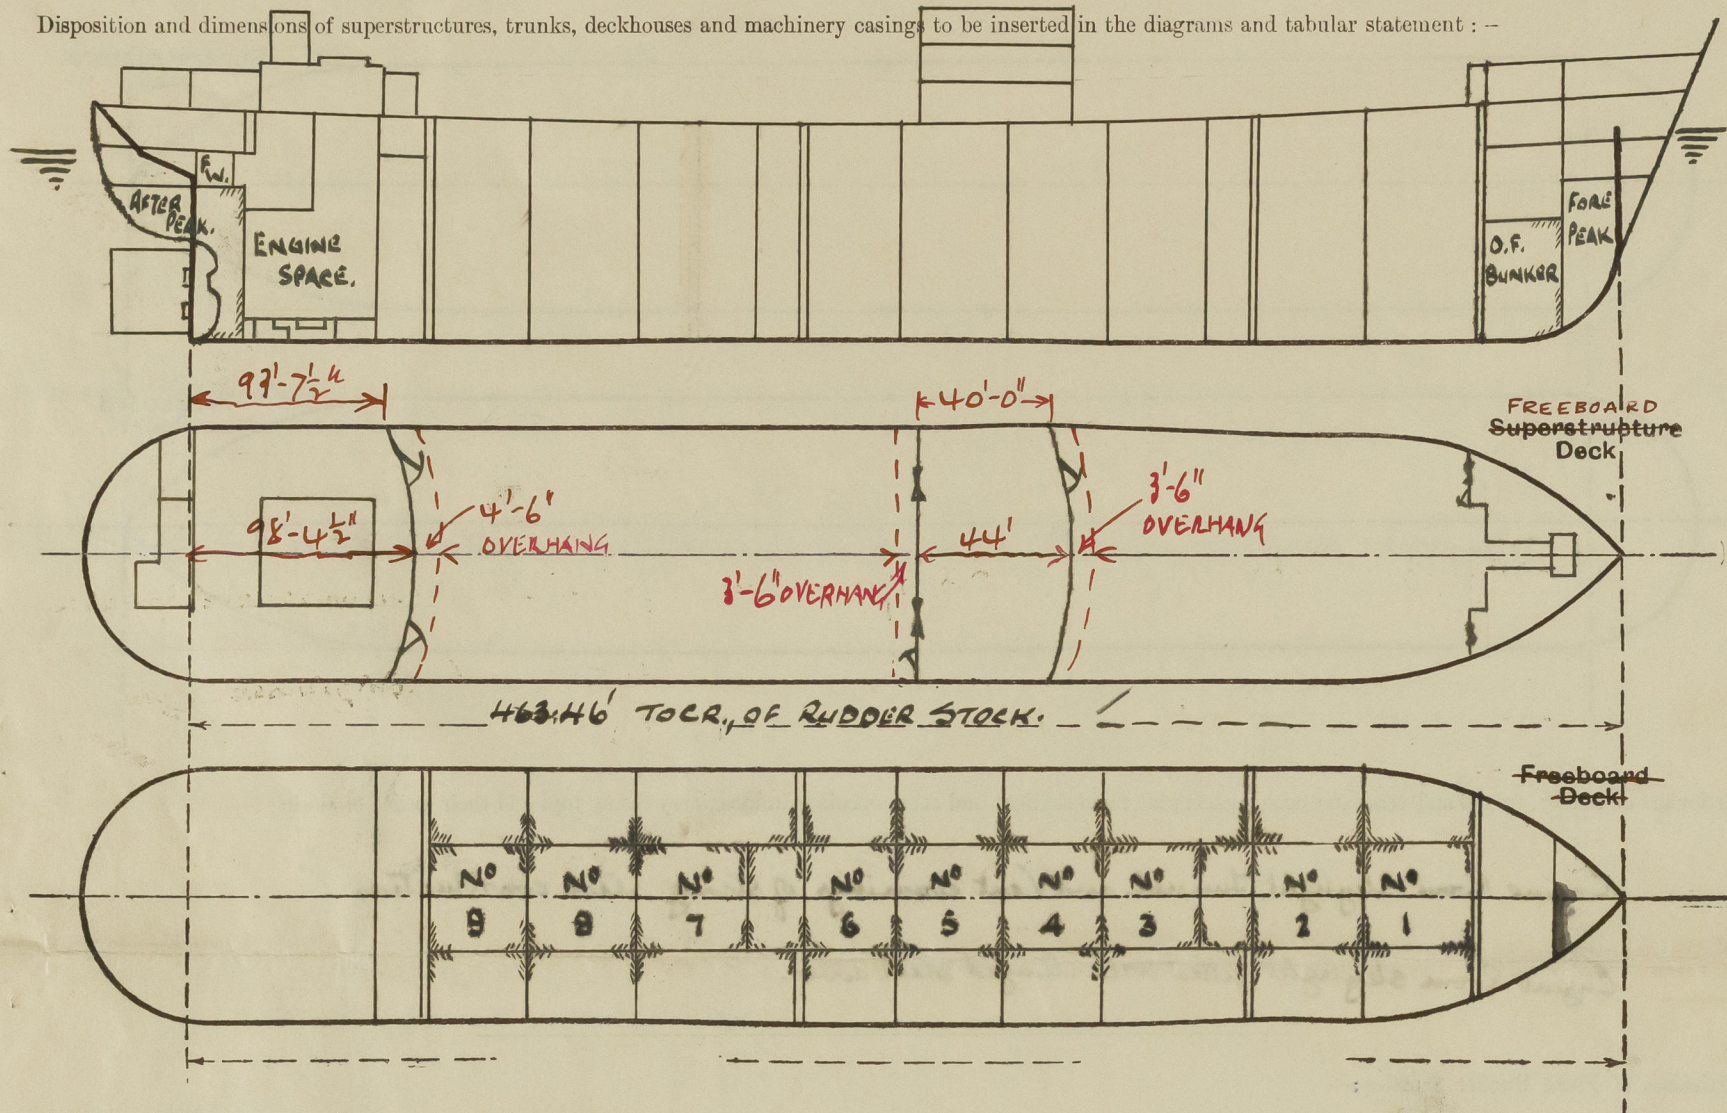 Disposition and dimensions of superstructures, trunks, deckhouses and machinery casings to be inserted in the diagrams and tabular statement : —
F.W.
AFTER PEAK.
ENGINE SPACE.
O.F. BUNKER
FORE PEAK
40'-0"
FREEBOARD
Superstructure
Deck
98'-4½"
4'-6" OVERHANG
3'-6" OVERHANG
44'
3'-6" OVERHANG
463.46' TO CR. OF RUDDER STOCK.
Freeboard
Deck
No 9
No 8
No 7
No 6
No 5
No 4
No 3
No 2
No 1